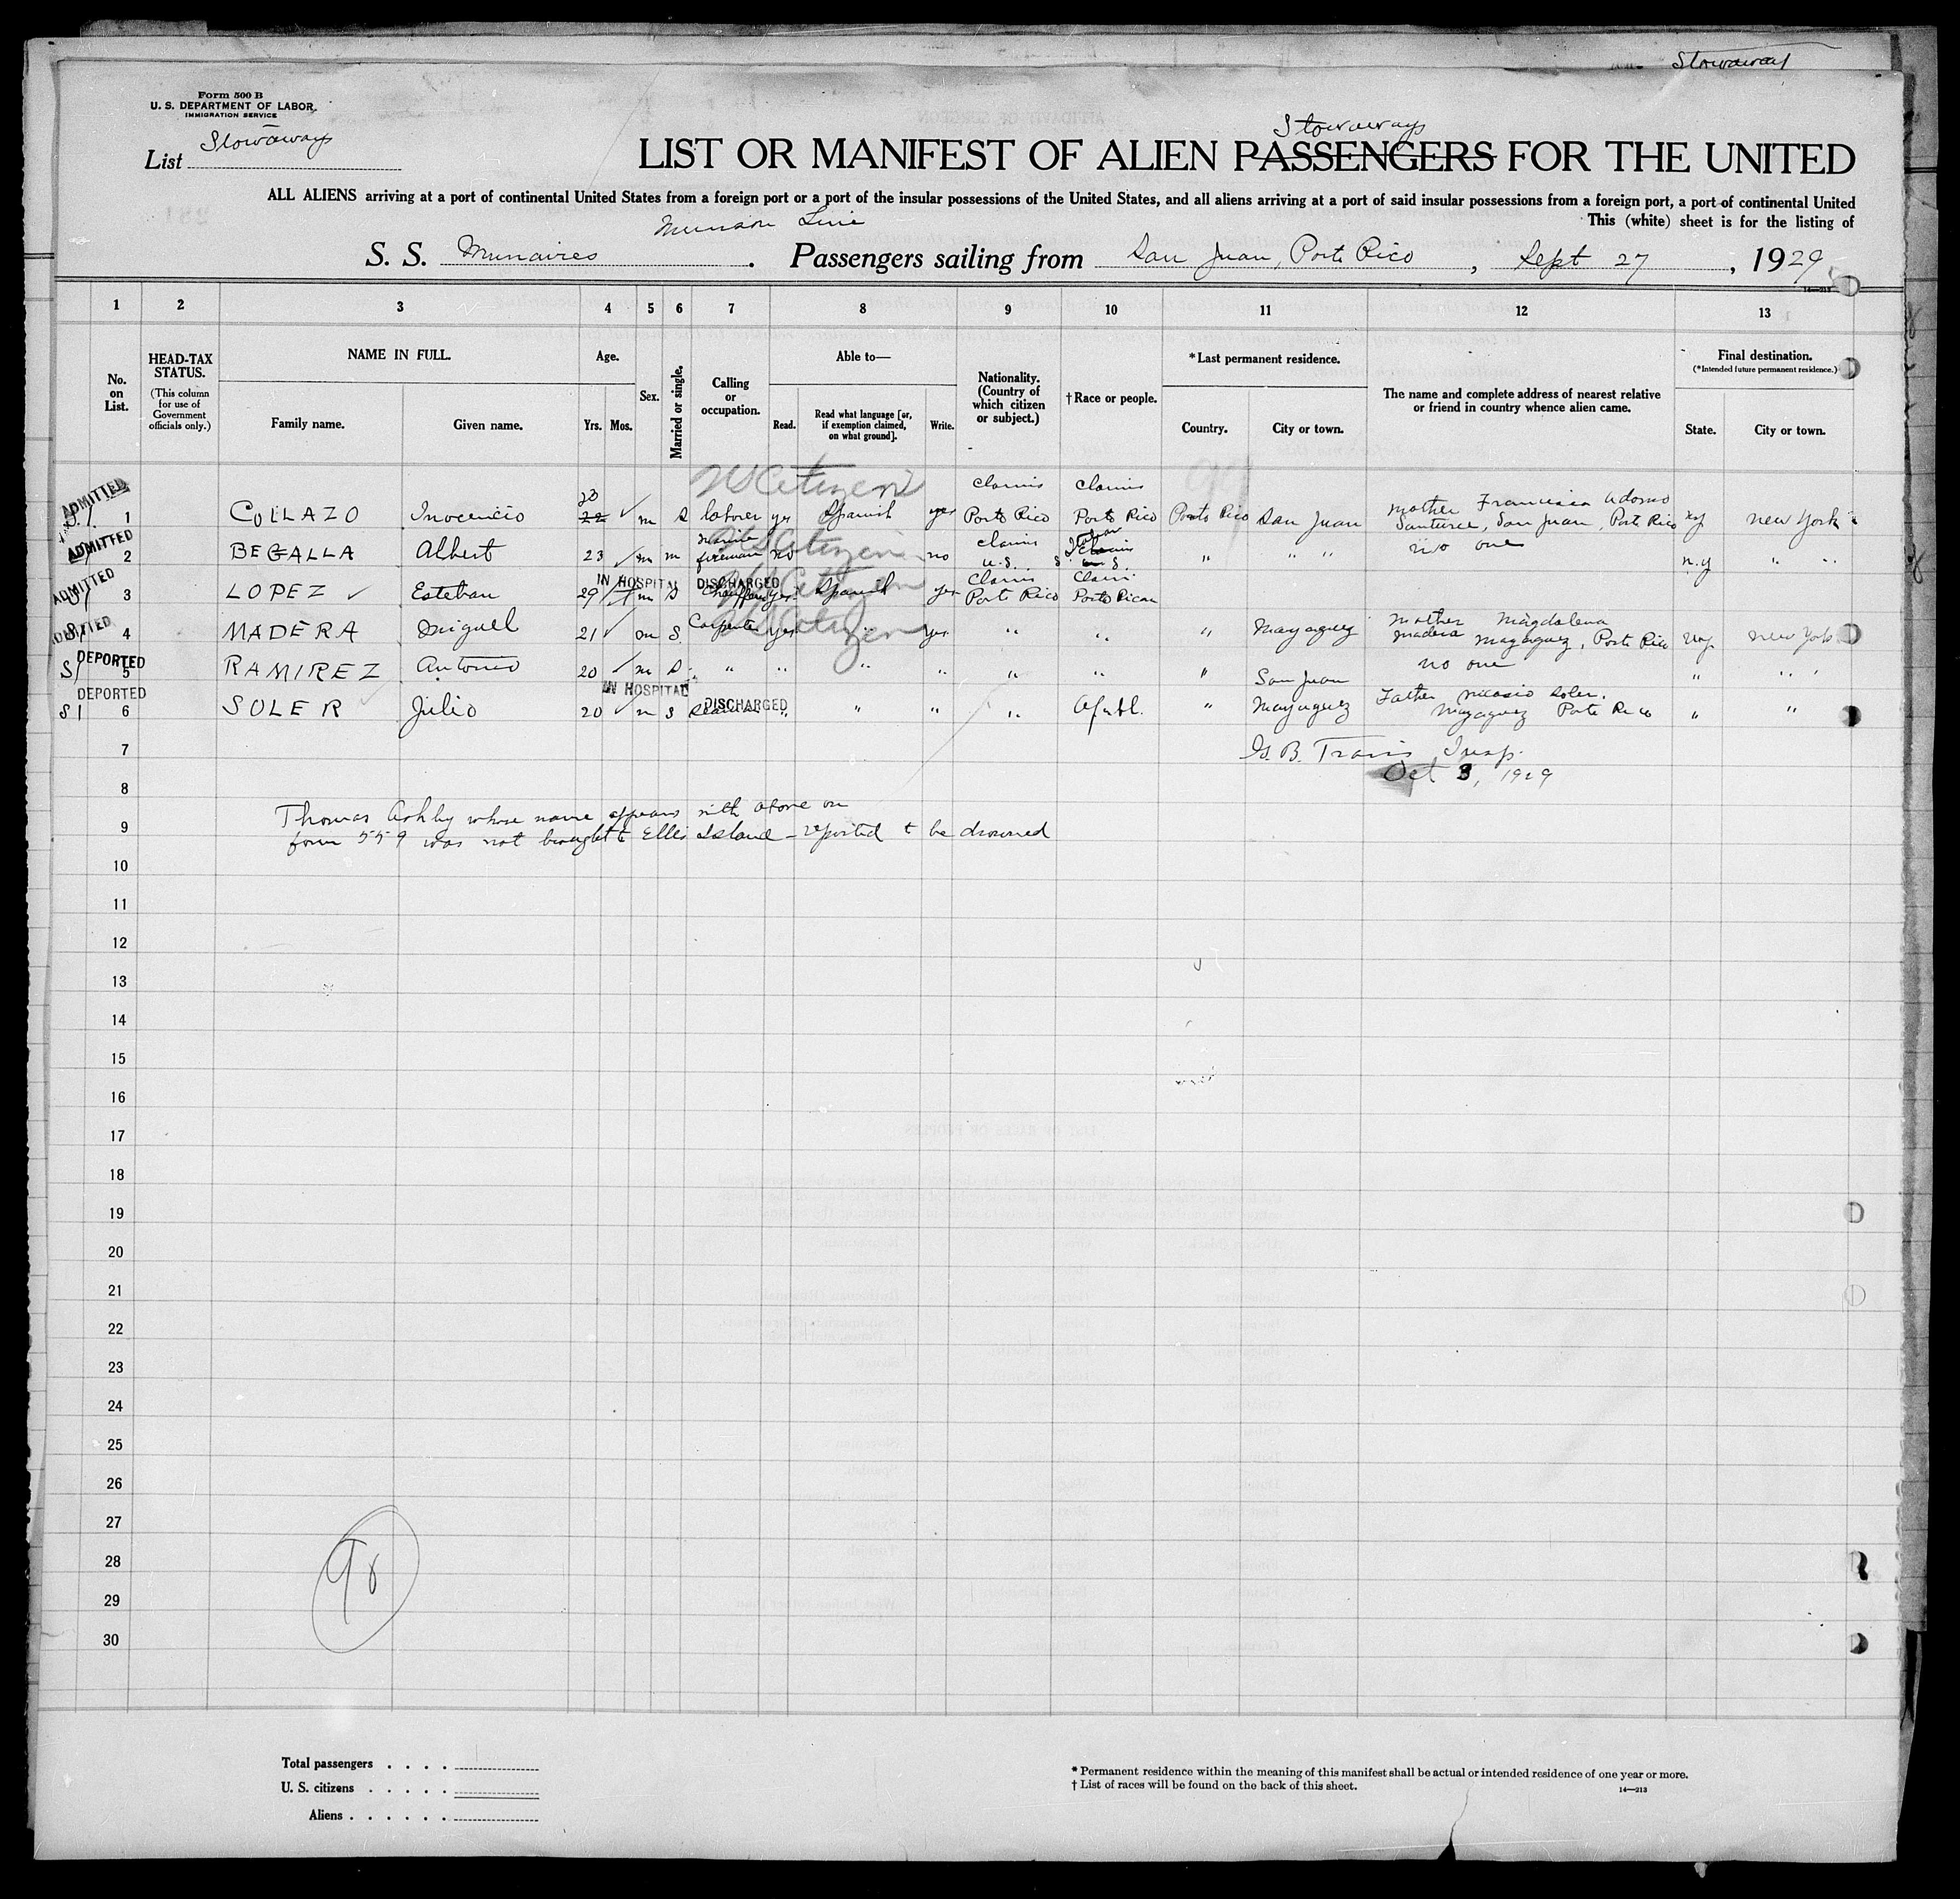 Stowaway
Form 500 B
U. S. DEPARTMENT OF LABOR
IMMIGRATION SERVICE
List Stowaways
Stowaways
LIST OR MANIFEST OF ALIEN PASSENGERS FOR THE UNITED
ALL ALIENS arriving at a port of continental United States from a foreign port or a port of the insular possessions of the United States, and all aliens arriving at a port of said insular possessions from a foreign port, a port of continental United
This (white) sheet is for the listing of
Munson Line
S. S. Munaires. Passengers sailing from San Juan, Porto Rico, Sept 27, 1929
1 2 3 4 5 6 7 8 9 10 11 12 13
No. on List.
HEAD-TAX STATUS.
(This column for use of Government officials only.)
NAME IN FULL.
Family name. Given name.
Age.
Yrs. Mos.
Sex.
Married or single.
Calling or occupation.
Able to—
Read. Read what language [or, if exemption claimed, on what ground]. Write.
Nationality. (Country of which citizen or subject.)
†Race or people.
*Last permanent residence.
Country. City or town.
The name and complete address of nearest relative or friend in country whence alien came.
Final destination.
(*Intended future permanent residence.)
State. City or town.
US Citizen
ADMITTED 1 COLLAZO Inocencio 23 22 m S laborer yes Spanish yes claims Porto Rico claims Porto Rico Porto Rico San Juan mother Francisca Adorno Santurce, San Juan, Porto Rico NY New York
US Citizen
ADMITTED 2 BEGALLA Albert 23 m m fireman no no claims U.S. " " " no one N.Y " "
IN HOSPITAL DISCHARGED US Citizen
ADMITTED SI 3 LOPEZ Esteban 29 m S Chauffeur yes Spanish yes Claims Porto Rico Claim Porto Rican
US Citizen
ADMITTED SI 4 MADERA Miguel 21 m S. Carpenter yes " yes " " " Mayaguez mother Magdalena Madera Mayaguez, Porto Rico N.Y. New York
DEPORTED SI 5 RAMIREZ Antonio 20 m S " " " " " " San Juan no one " "
IN HOSPITAL DISCHARGED
DEPORTED SI 6 SOLER Julio 20 m S Seaman " " " " Af. bl. " Mayaguez Father Nicasio Soler. Mayaguez Porto Rico " "
7 G. B. Travis Insp.
Oct 3, 1929
8
Thomas Ashby whose name appears with above on
9 form 559 was not brought to Ellis Island – reported to be drowned
10
11
12
13
14
15
16
17
18
19
20
21
22
23
24
25
26
27
28
29
30
98
Total passengers . . . .
U. S. citizens . . . . .
Aliens . . . . . .
* Permanent residence within the meaning of this manifest shall be actual or intended residence of one year or more.
† List of races will be found on the back of this sheet.
14—213